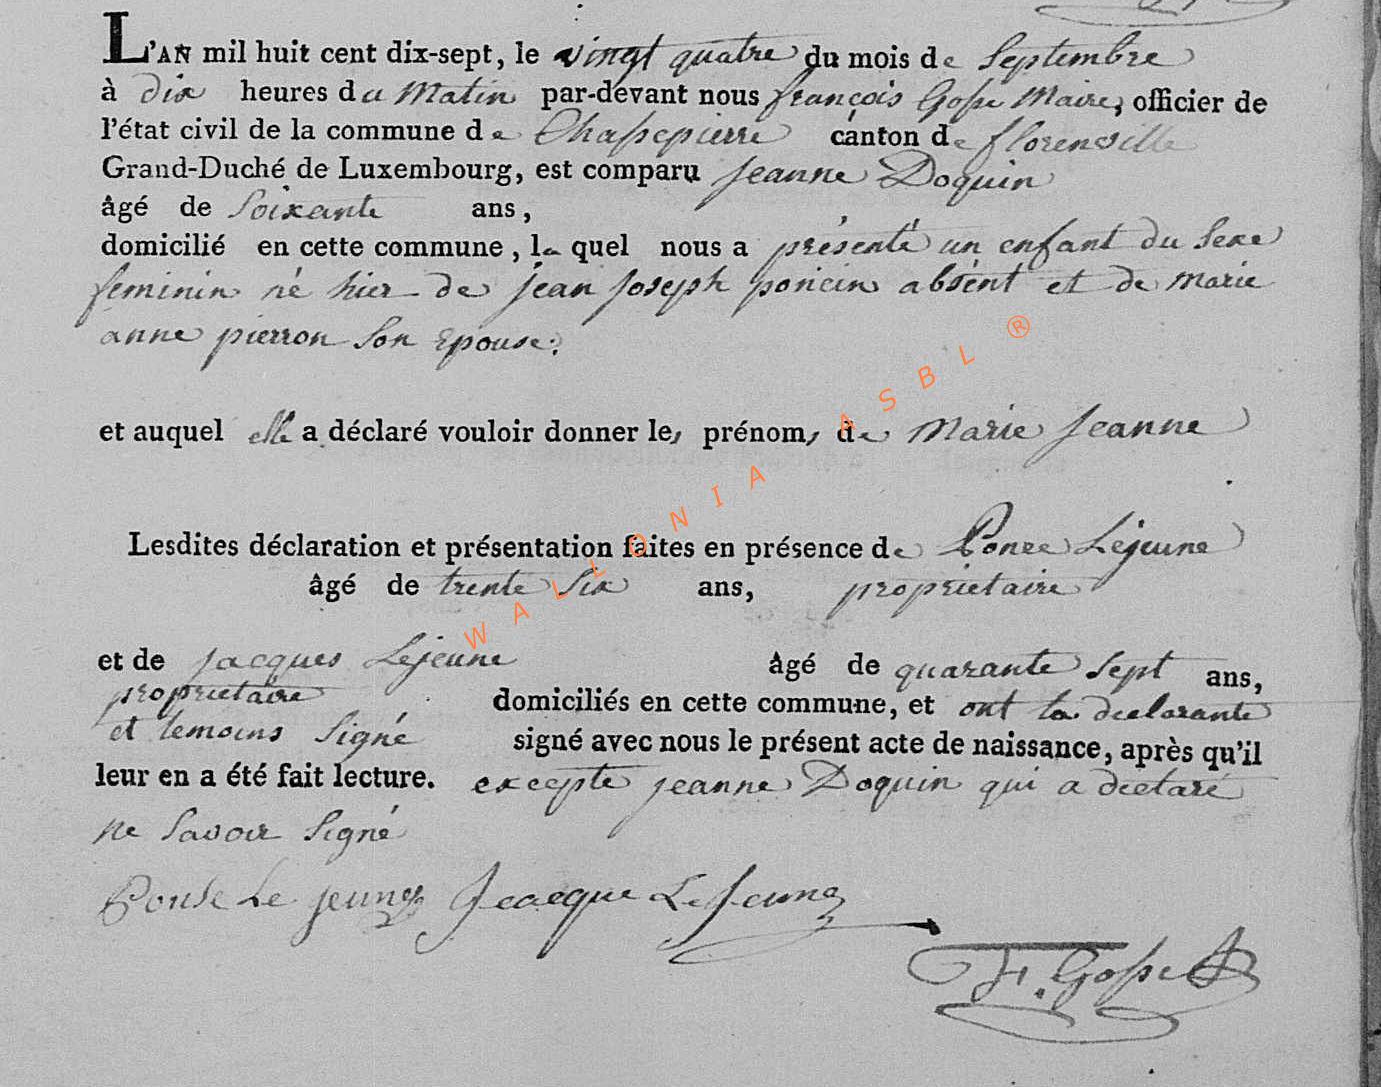 L'AN mil huit cent dix-sept, le vingt quatre du mois de Septembre
à dix heures du Matin par-devant nous françois Gosse Maire, officier de
l'état civil de la commune de Chassepierre canton de florenville
Grand-Duché de Luxembourg, est comparu jeanne Doquin
âgé de Soixante ans,
domicilié en cette commune, la quel nous a présenté un enfant du Sexe
feminin né hier de jean joseph poncin absent et de marie
anne pierron Son Epouse:
et auquel elle a déclaré vouloir donner les prénoms de Marie Jeanne
Lesdites déclaration et présentation faites en présence de Ponce Lejeune
âgé de trente Six ans, proprietaire
et de jacques Lejeune âgé de quarante Sept ans,
proprietaire domiciliés en cette commune, et ont la declarante
et temoins Signé signé avec nous le présent acte de naissance, après qu'il
leur en a été fait lecture. excepte jeanne Doquin qui a declaré
ne Savoir Signé
Ponse Le jeune Jeacque Le Jeune
F. Gosse
WALLONIA ASBL ®